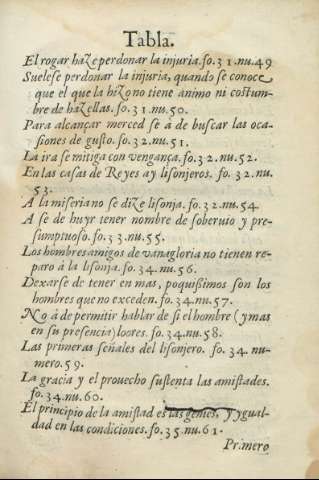 Tabla.
El rogar haze perdonar la injuria. fo. 31. nu. 49
Suelese perdonar la injuria, quando se conoce
que el que la hizo no tiene animo ni costum-
bre de hazellas. fo. 31. nu. 50.
Para alcançar merced se á de buscar las oca-
siones de gusto. fo. 32. nu. 51.
La ira se mitiga con vengança. fo. 32. nu. 52.
En las casas de Reyes ay lisonjeros. fo. 32. nu.
53.
A la miseria no se dize lisonja. fo. 32. nu. 54.
A se de huyr tener nombre de soberuio y pre-
sumptuoso. fo. 33. nu. 55.
Los hombres amigos de vanagloria no tienen re-
paro á la lisonja. fo. 34. nu. 56.
Dexarse de tener en mas, poquissimos son los
hombres que no exceden. fo. 34. nu. 57.
No á de permitir hablar de si el hombre (y mas
en su presencia) loores. fo. 34. nu. 58.
Las primeras señales del lisonjero. fo. 34. nu-
mero. 59.
La gracia y el prouecho sustenta las amistades.
fo. 34. nu. 60.
El principio de la amistad es las gentes, y ygual-
dad en las condiciones. fo. 35. nu. 61.
Primero